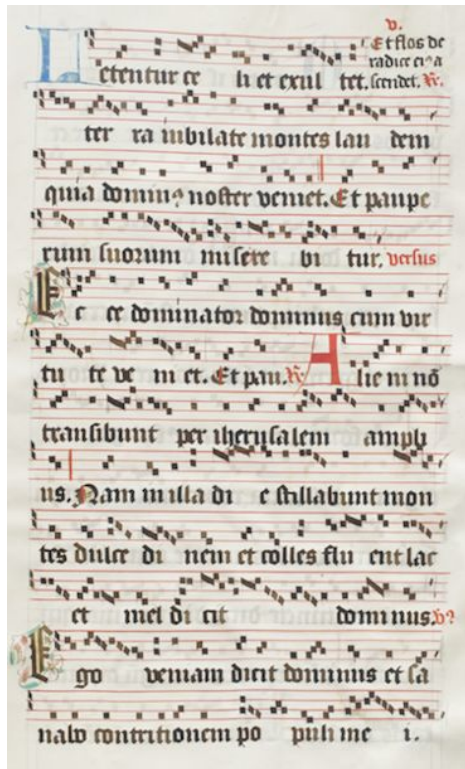 v.
Et flos de
radice ei9 a
Letentur ce li et exul tet. scendet. R.
ter ra iubilate montes lau dem
quia domin9 noster veniet. Et paupe
rum suorum misere bi tur. versus
Ec ce dominator dominus cum vir
tu te ve ni et. Et pau. R. Alie ni nō
transibunt per iherusalem ampli
us. Nam in illa di e stillabunt mon
tes dulce di nem et colles flu ent lac
et mel di cit dominus. v9
Ego veniam dicit dominus et sa
nabo contritionem po puli me i.